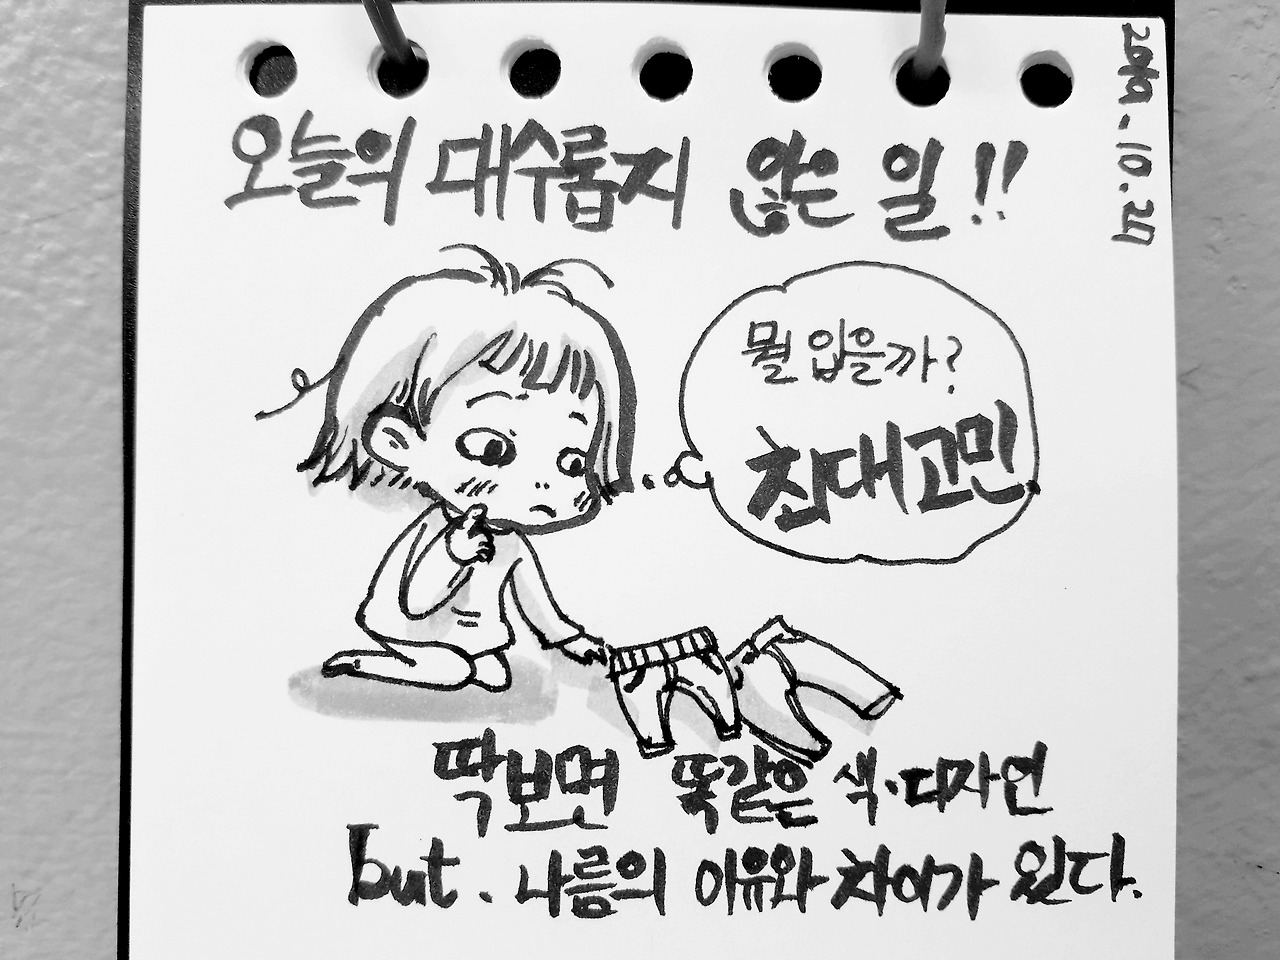 2019. 10. 24
오늘의 대수롭지 않은 일!!
뭘 입을까?
최대고민
딱보면 똑같은 색·디자인
but. 나름의 이유와 차이가 있다.